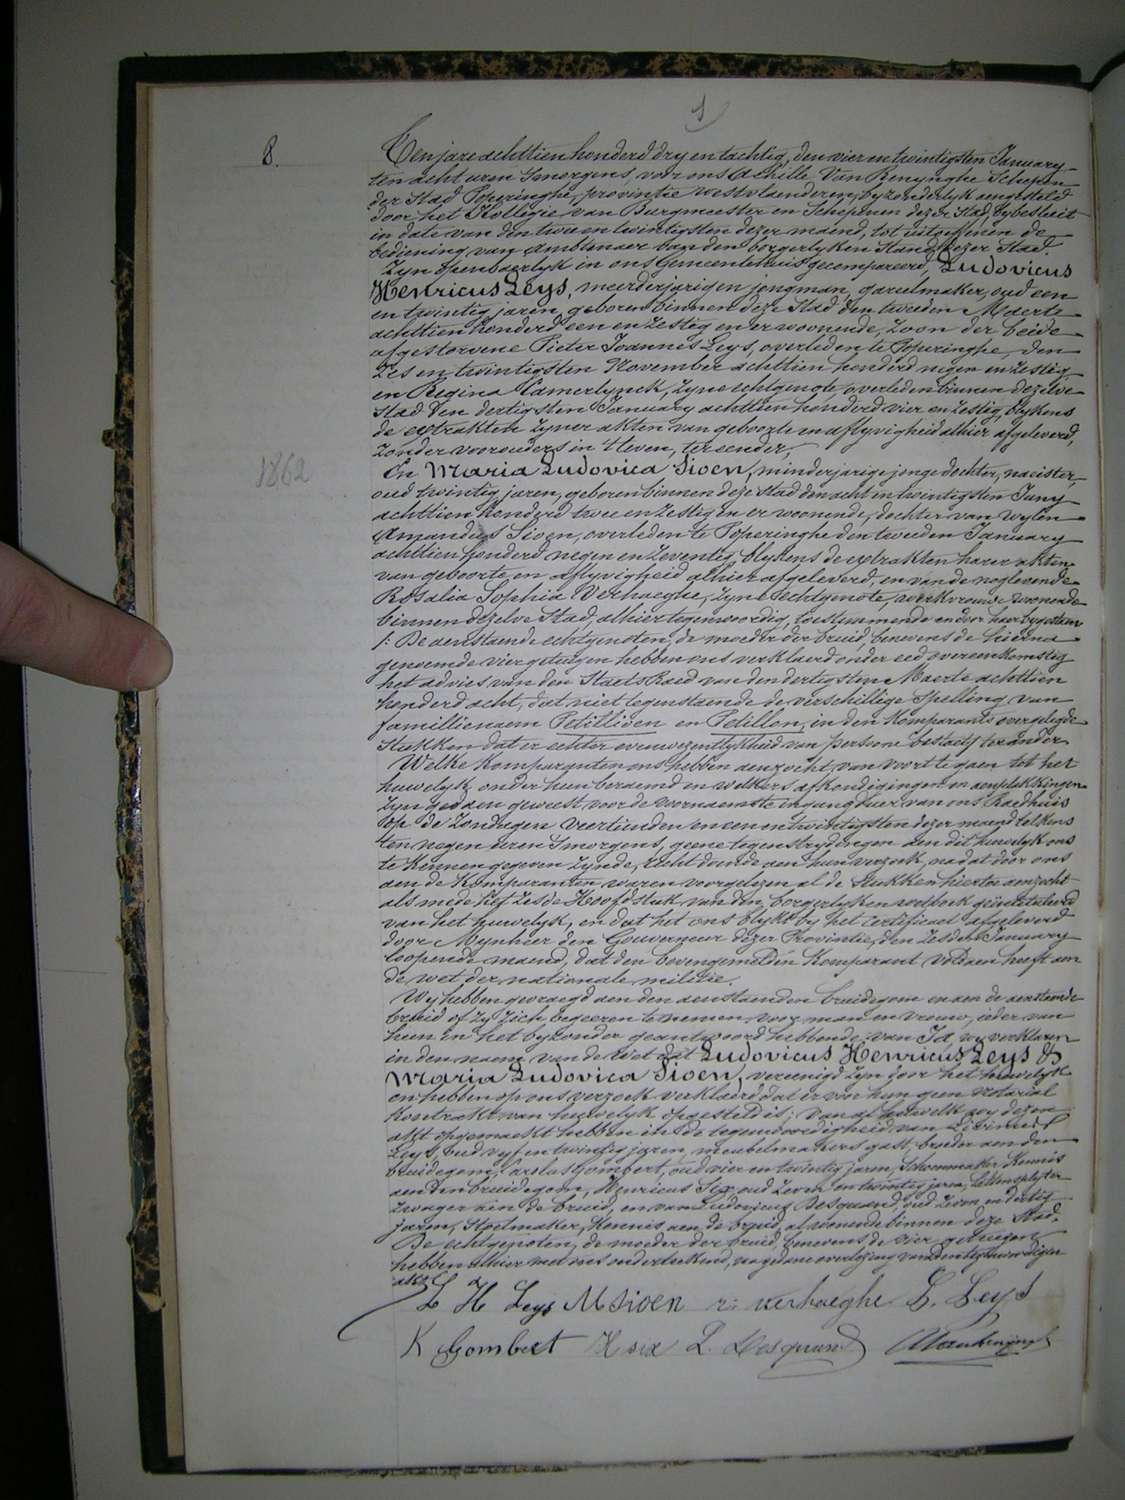 8.
Ten jare achttien honderd dry en tachtig, den vier en twintigsten January
ten acht uren s'morgens, voor ons Achille Van Renynghe Schepen
der Stad Poperinghe, provintie westvlaenderen, byzonderlyk aengesteld
door het Kollegie van Burgmeester en Schepenen dezer Stad, by besluit
in date van den twee en twintigsten dezer maend, tot uitoeffenen de
bediening van Ambtenaer van den borgerlyken Stand dezer Stad.
Zyn openbaerlyk in ons Gemeentehuis gecompareerd, Ludovicus
Henricus Leys, meerderjarigen jongman, gareelmaker, oud een
en twintig jaren, geboren binnen deze Stad den tweeden Maerte
achttien honderd een en zestig en er woonende, zoon der beide
afgestorvene Pieter Joannes Leys, overleden te Poperinghe, den
zes en twintigsten November achttien honderd negen en zestig
en Regina Camerlynck, zyne echtgenote, overleden binnen dezelve
Stad den dertigsten January achttien honderd vier en zestig, blykens
de extrakten zyner akten van geboorte en aflyvigheid alhier afgeleverd,
zonder voorouders in 't leven, ter eender,
En Maria Ludovica Sioen, minderjarige jonge dochter, naeister,
oud twintig jaren, geboren binnen deze Stad den acht en twintigsten Juny
1862
achttien honderd twee en zestig en er woonende, dochter van wylen
Amandus Sioen, overleden te Poperinghe den tweeden January
achttien honderd negen en zeventig, blykens de extrakten harer akten
van geboorte en aflyvigheid alhier afgeleverd, en van de noglevende
Rosalia Sophia Verhaeghe, zyne echtgenote, werkvrouw woonende
binnen dezelve Stad, alhier tegenwoordig, toestemmende en door haer bygestaen
/: De aenstaende echtgenoten, de moeder der bruid, benevens de hierna
genoemde vier getuigen hebben ons verklaerd onder eed overeenkomstig
het advies van den Staets Raed van den dertigsten Maerte achttien
honderd acht, dat niet tegenstaende de verschillige spelling van
familienaem Petillioen en Petillon, in den komparants overgelegde
Stukken dat er echter eenwezentlykheid van persone bestaet, ter ander
Welke komparanten ons hebben aenzocht van voort te gaen tot het
huwelyk onder hun beraemd en welkers afkondigingen en aenplakkingen
zyn gedaen geweest voor de voornaemste ingangdeur van ons Raedhuis
op de Zondagen veertienden en een en twintigsten dezer maend telkens
ten negen uren s'morgens, geene tegenstrydingen aen dit huwelyk ons
te kennen gegeven zynde, recht doende aen hun verzoek, nadat door ons
aen de komparanten waren voorgelezen al de stukken hiertoe aenzocht
als mede het zesde Hoofdstuk van den borgerlyken wetboek geintituleerd
van het huwelyk, en dat het ons blykt by het certificaet afgeleverd
door Mynheer den Gouverneur dezer Provintie, den zesden January
loopende maend, dat den bovengemelden komparant voldaen heeft aen
de wet der nationale militie.
Wy hebben gevraegd aen den aenstaenden bruidegom en aen de aenstaende
bruid of zy zich begeeren te nemen voor man en vrouw, ieder van
hun in het byzonder geantwoord hebbende van Ja, wy verklaren
in den naem van de Wet dat Ludovicus Henricus Leys &
Maria Ludovica Sioen, vereenigd zyn door het huwelyk
en hebben op ons verzoek verklaerd dat er voor hun geen notariael
kontrakt van huwelyk opgesteld is; van al hetwelk wy dezen
akt opgemaekt hebben in de tegenwoordigheid van Livinus
Leys, oud vyf en twintig jaren, meubelmakers gast, broeder aen den
bruidegom, Carolus Gombert, oud vier en twintig jaren, schoenmaker, kennis
aen den bruidegom, Henricus Six, oud zeven en twintig jaren,
zwager aen de bruid, en van Ludovicus Desquand, oud zeven en dertig
jaren, stoelmaker, kennis aen de bruid, al woonende binnen deze Stad.
De echtgenoten, de moeder der bruid, benevens de vier getuigen
hebben alhier met ons onderteekend, na gedane voorlezing van den tegenwoordigen
akt.
L H Leys M Sioen r: verhaeghe L. Leys
K Gombert H six L. Desquand AVanRenynghe